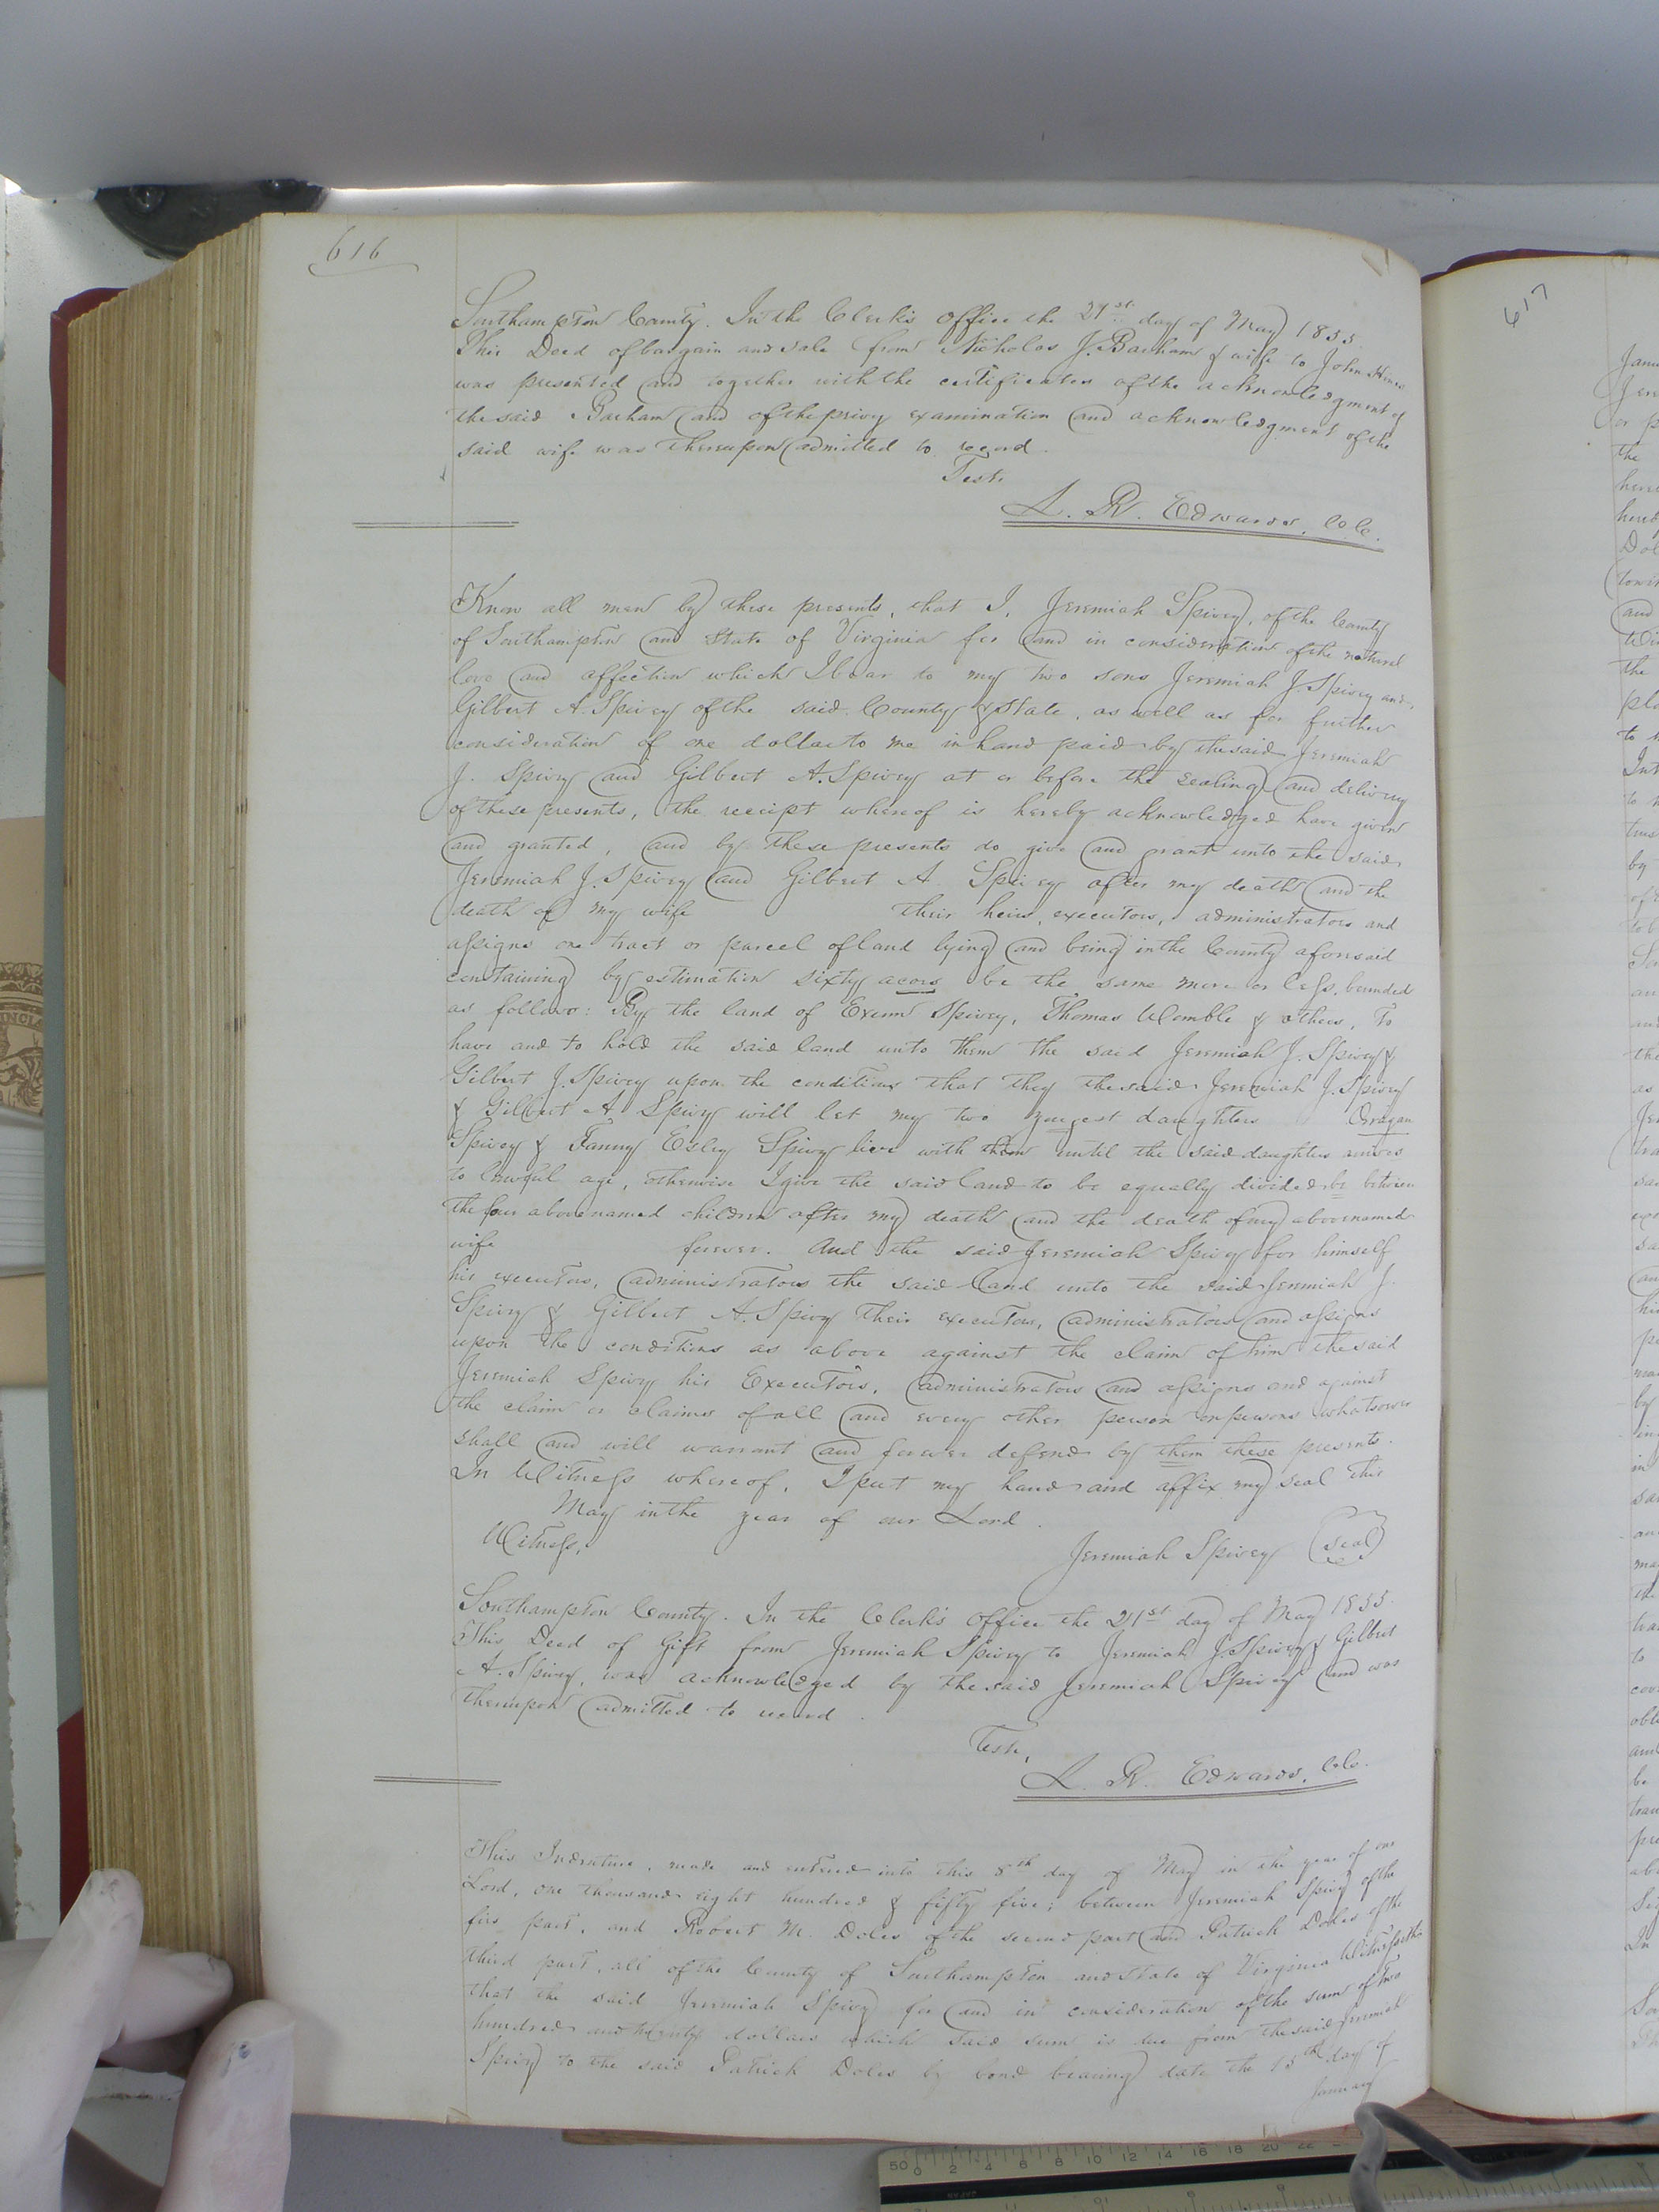 616
Southampton County. In the Clerk's Office the 21st day of May 1855.
This Deed of bargain and sale from Nicholas J. Barham & wife to John Hines
was presented and together with the certificates of the acknowledgment of
the said Barham and of the privy examination and acknowledgment of the
said wife was thereupon admitted to record.
Teste
L. R. Edwards. C.C.
Know all men by these presents, that I, Jeremiah Spivey, of the County
of Southampton and State of Virginia for and in consideration of the natural
love and affection which I bear to my two sons Jeremiah J. Spivey and
Gilbert A. Spivey of the said County & State, as well as for further
consideration of one dollar to me in hand paid by the said Jeremiah
J. Spivey and Gilbert A. Spivey at or before the sealing and delivery
of these presents, the receipt whereof is hereby acknowledged have given
and granted, and by these presents do give and grant unto the said
Jeremiah J. Spivey and Gilbert A Spivey after my death and the
death of my wife their heirs, executors, administrators and
assigns one tract or parcel of land lying and being in the County aforesaid
containing by estimation sixty acors be the same more or less, bounded
as follows: By the land of Exum Spivey, Thomas Womble & others, To
have and to hold the said land unto them the said Jeremiah J. Spivey &
Gilbert J. Spivey upon the conditions that they the said Jeremiah J. Spivey
& Gilbert A. Spivey will let my two youngest daughters Orragan
Spivey & Fanny Esley Spivey live with them until the said daughters arrives
to lawful age, otherwise I give the said land to be equally divided be between
the four above named children after my death and the death of my above named
wife forever. And the said Jeremiah Spivey for himself
his executors, administrators the said land unto the said Jeremiah J.
Spivey & Gilbert A. Spivey their executors, administrators and assigns
upon the conditions as above against the claim of him the said
Jeremiah Spivey his Executors, administrators and assigns and against
the claim or claims of all and every other person or persons whatsoever
shall and will warrant and forever defend by them these presents.
In Witness whereof, I put my hand and affix my seal this
May in the year of our Lord.
Witness,
Jeremiah Spivey (seal)
Southampton County. In the Clerk's Office the 21st day of May 1855.
This Deed of Gift from Jeremiah Spivey to Jeremiah J. Spivey & Gilbert
A. Spivey, was acknowledged by the said Jeremiah Spivey and was
thereupon admitted to record.
Teste,
L. R. Edwards, C.C.
This Indenture, made and entered into this 8th day of May in the year of our
Lord, one thousand eight hundred & fifty five; between Jeremiah Spivey of the
firs part, and Robert M. Doles of the second part and Patrick Doles of the
third part, all of the County of Southampton and State of Virginia Witnesseth
that the said Jeremiah Spivey for and in consideration of the sum of two
hundred and twenty dollars which said sum is due from the said Jeremiah
Spivey to the said Patrick Doles by bond bearing date the 15th day of
January
617